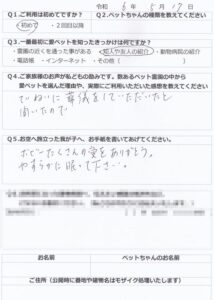 令和 6年 5月 17日
Q1.ご利用は初めてですか？ Q2.ペットちゃんの種類を教えてください
・初めて ・2回目以降
Q3.一番最初に愛ペットを知ったきっかけは何ですか？
・霊園の近くを通った事がある ・知人や友人の紹介 ・動物病院の紹介
・電話帳 ・インターネット ・その他（ ）
Q4.ご家族様のお声が私どもの励みです。数あるペット霊園の中から
愛ペットを選んだ理由や、実際にご利用いただいた感想をお教えください
ていねいに葬儀をしていただいたと
聞いたので
Q5.お空へ旅立った我が子へ、お手紙を書いてあげてください。
たくさんの愛をありがとう。
やすらかに眠って下さい…。
お名前 ペットちゃんのお名前
ご住所（公開時に番地や建物名はモザイク処理いたします）